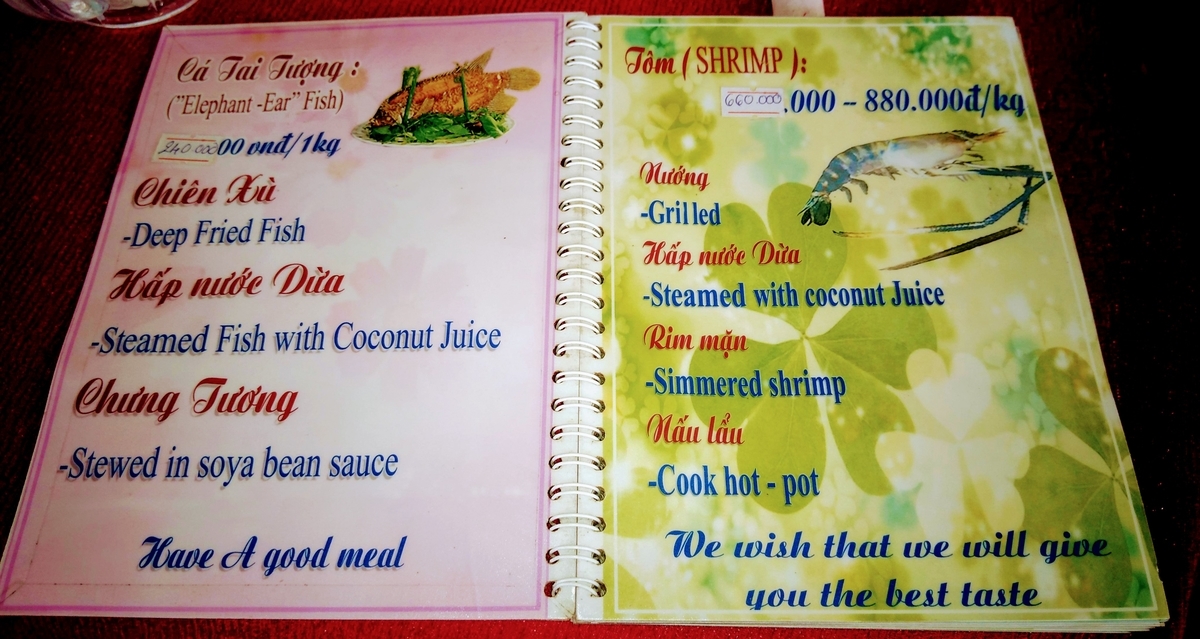 Cá Tai Tượng :
("Elephant -Ear" Fish)
240.000 00 vnđ/1kg
Chiên Xù
-Deep Fried Fish
Hấp nước Dừa
-Steamed Fish with Coconut Juice
Chưng Tương
-Stewed in soya bean sauce
Have A good meal
Tôm ( SHRIMP ):
660.000 .000 – 880.000đ/kg
Nướng
-Grilled
Hấp nước Dừa
-Steamed with coconut Juice
Rim mặn
-Simmered shrimp
Nấu lẩu
-Cook hot - pot
We wish that we will give
you the best taste